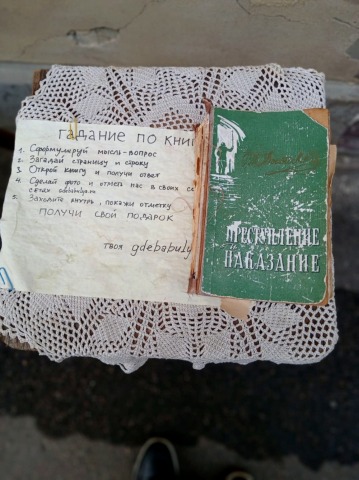 ГАДАНИЕ ПО КНИГ
1. Сформулируй мысль-вопрос
2. Загадай страницу и строку
3. Открой книгу и получи ответ
4. Сделай фото и отметь нас в своих со
сетях
5. Заходи внутрь, покажи отметку
ПОЛУЧИ СВОЙ ПОДАРОК
твоя gdebabuly
ПРЕСТУПЛЕНИЕ
НАКАЗАНИЕ